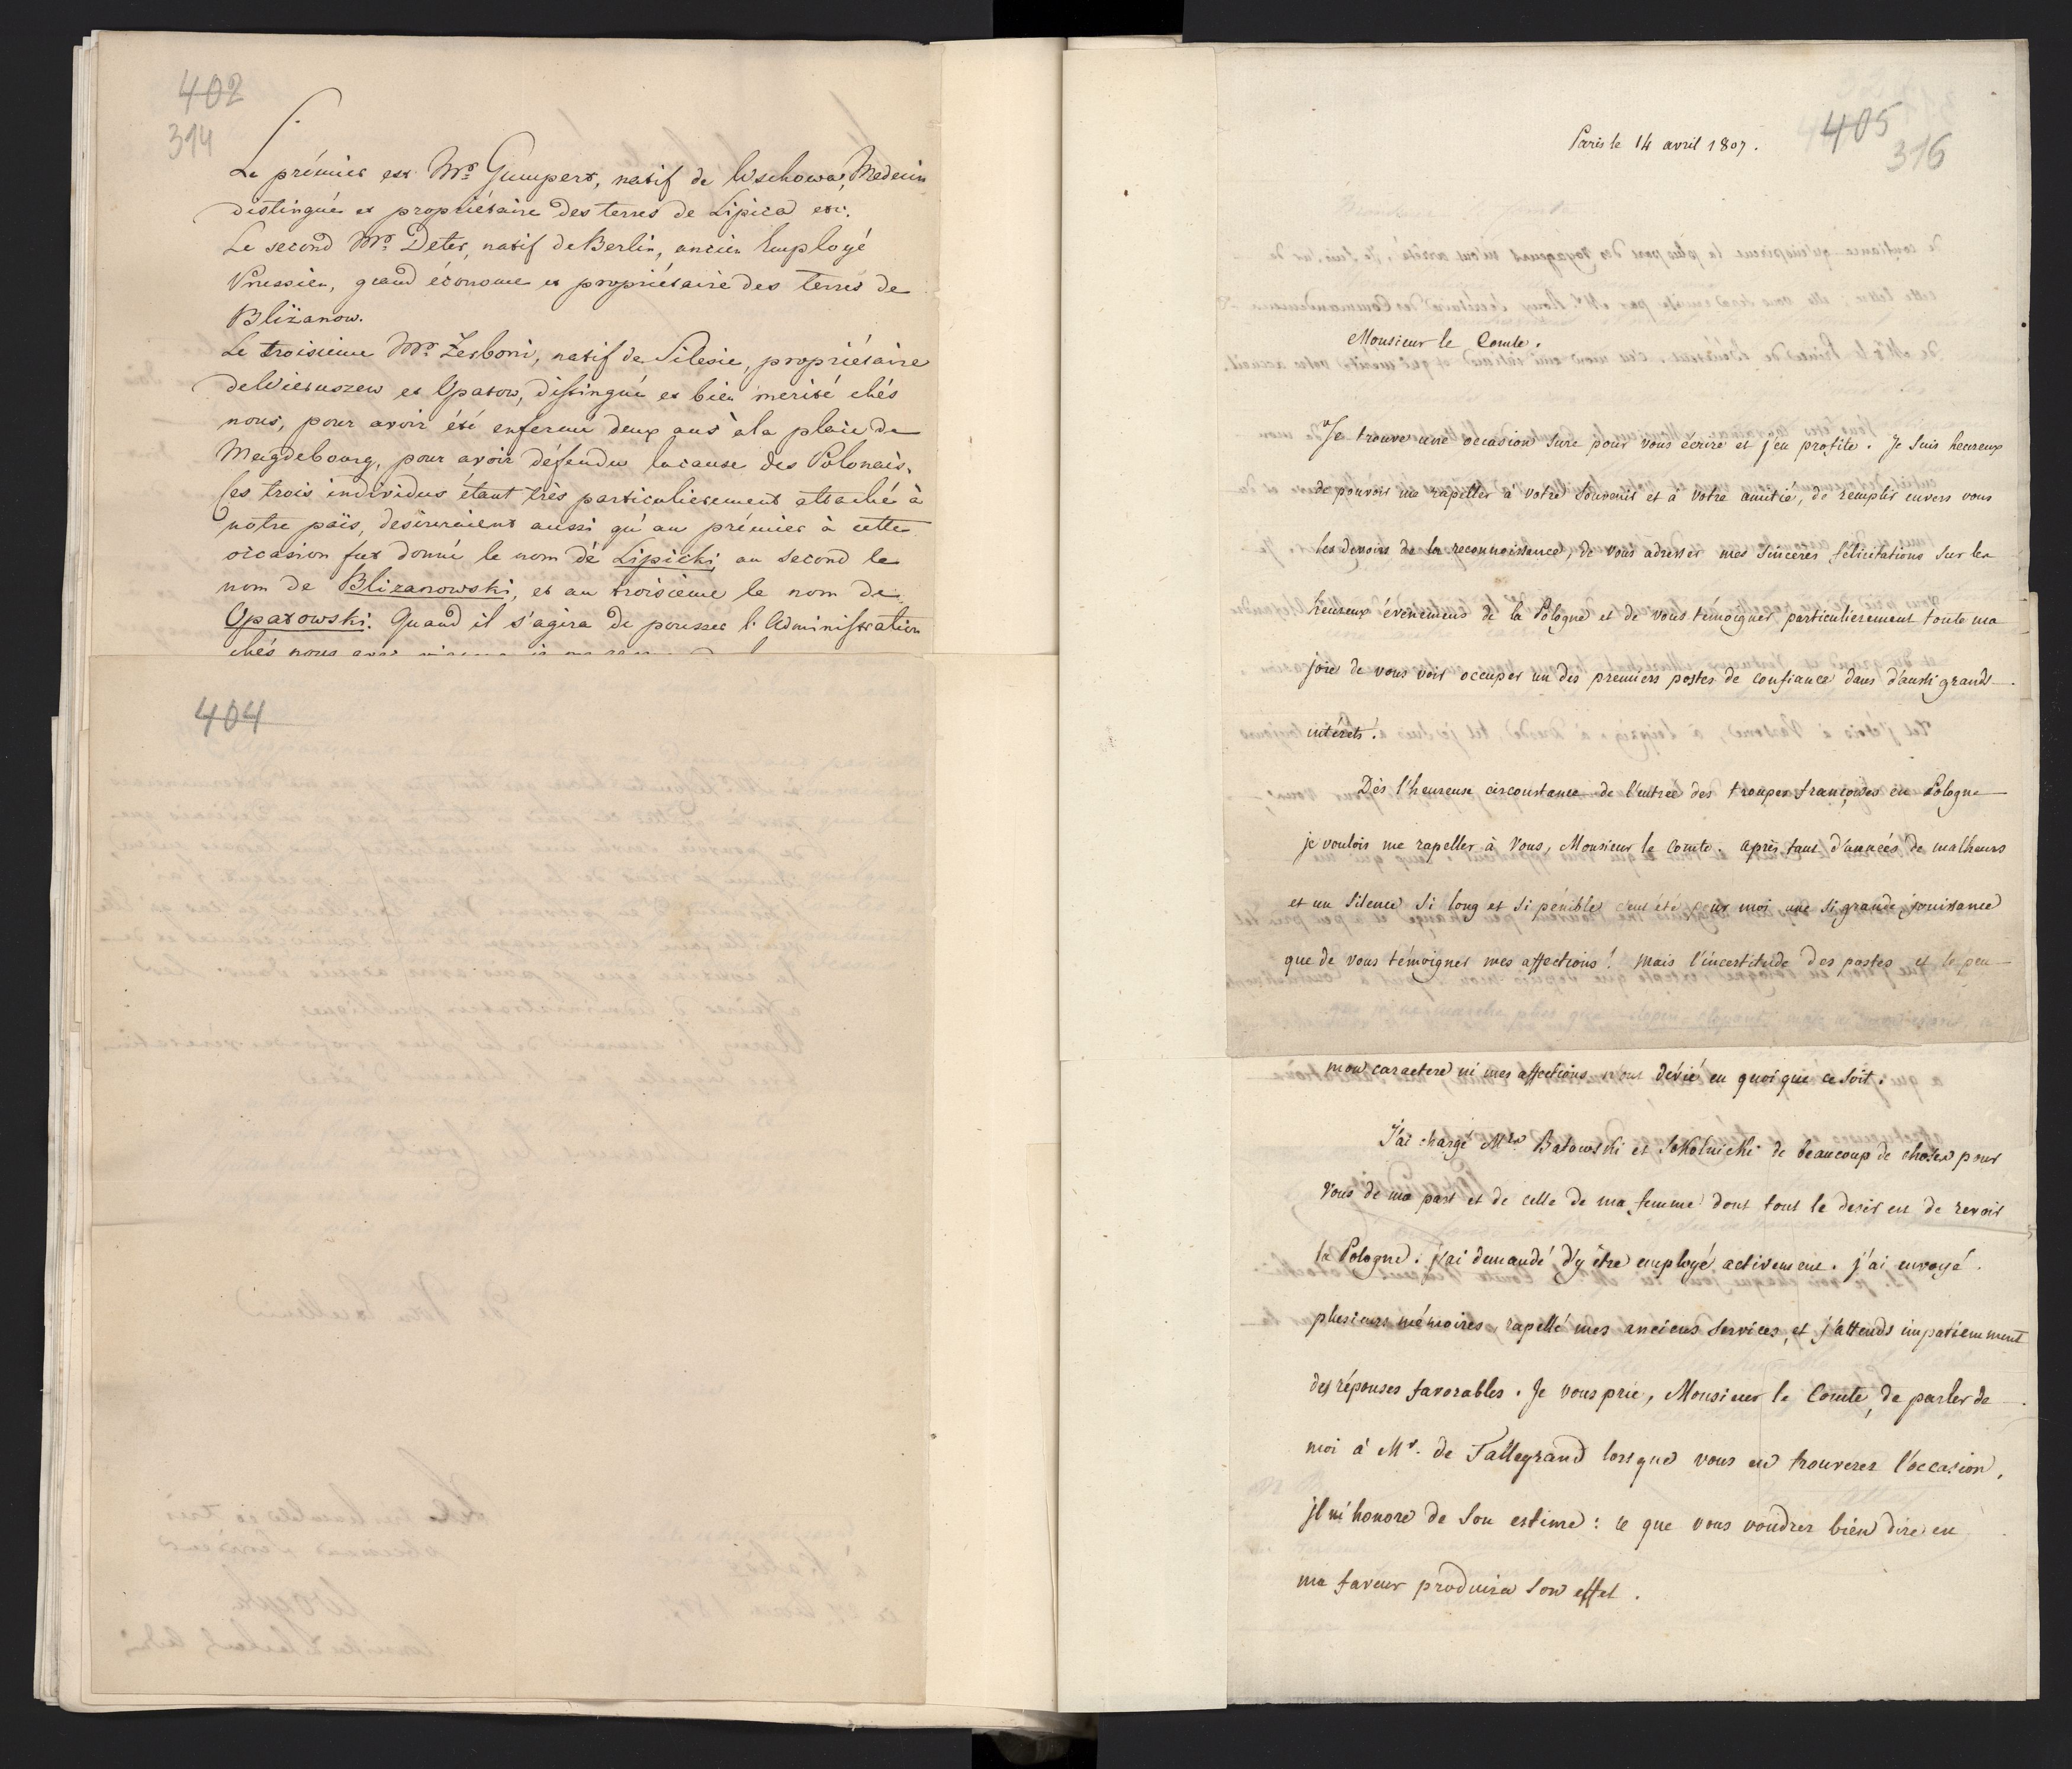 402
314
Le prémier est Mr. Gumpert, natif de Wschowa, Medecin
distingué et propriétaire des terres de Lipica etc.
Le second Mr. Deter, natif de Berlin, ancien Employé
Prussien, grand économe et propriétaire des terres de
Bliżanow.
Le troisieme Mr. Zerboni, natif de Silesie, propriétaire
de Wieruszew et Opatow, distingué et bien merité chés
nous, pour avoir été enfermé deux ans à la place de
Magdebourg, pour avoir défendu la cause des Polonais.
Ces trois individus étant très particulierement attaché à
notre païs, desireraient aussi qu'au prémier à cette
occasion fut donné le nom de Lipicki au second le
nom de Blizanowski, et au troisieme le nom de
Opatowski. Quand il s'agira de pousser l'Administration
chés nous
404
405
316
Paris le 14 avril 1807.
Monsieur le Comte.
Je trouve une occasion sure pour vous écrire et j'en profite. Je suis heureux
de pouvoir me rapeller à votre souvenir et à votre amitié, de remplir envers vous
les devoirs de la reconnoissance, de vous adresser mes sinceres félicitations sur les
heureux évenemens de la Pologne et de vous témoigner particulierement toute ma
joie de vous voir occuper un des premiers postes de confiance dans d'aussi grands
intérêts.
Dès l'heureuse circonstance de l'entrée des troupes françoises en Pologne
je voulois me rapeller à Vous, Monsieur le Comte. après tant d'années de malheurs
et un silence si long et si pénible c'eut été pour moi une si grande jouissance
que de vous témoigner mes affections! mais l'incertitude des postes et le peu
mon caractere ni mes affections n'ont dévié en quoi que ce soit.
J'ai chargé Mrs Batowski et Sokolnicki de beaucoup de choses pour
vous de ma part et de celle de ma femme dont tout le desir est de revoir
la Pologne. j'ai demandé d'y être employé activement. j'ai envoyé
plusieurs mémoires, rapellé mes anciens services, et j'attends impatiemment
des réponses favorables. Je vous prie, Monsieur le Comte, de parler de
moi à Mr. de Tallegrand lorsque vous en trouverez l'occasion,
il m'honore de son estime: ce que vous voudrez bien dire en
ma faveur produira son effet.